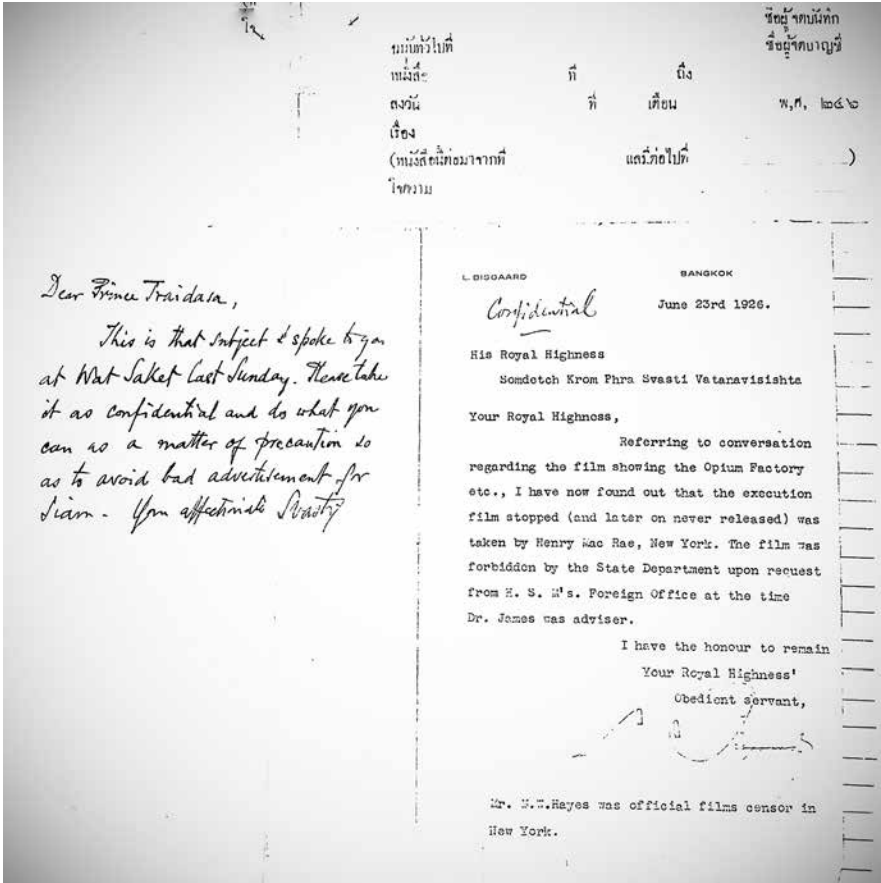 ใจ
ชื่อผู้จดบันทึก
ชื่อผู้จดบาญชี
ฉบับทั่วไปที่
หนังสือ ที่ ถึง
ลงวัน ที่ เดือน พ,ศ, ๒๔๖
เรื่อง
(หนังสือนี้ต่อมาจากที่ และมีต่อไปที่ )
ใจความ
Dear Prince Traidasa,
This is that subject I spoke to you
at Wat Saket last Sunday. Please take
it as confidential and do what you
can as a matter of precaution so
as to avoid bad advertisement for
Siam - Your affectionate Svasty
L. BISGAARD BANGKOK
Confidential June 23rd 1926.
His Royal Highness
Somdetch Krom Phra Svasti Vatanavisishta
Your Royal Highness,
Referring to conversation
regarding the film showing the Opium Factory
etc., I have now found out that the execution
film stopped (and later on never released) was
taken by Henry Mac Rae, New York. The film was
forbidden by the State Department upon request
from H. S. M's. Foreign Office at the time
Dr. James was adviser.
I have the honour to remain
Your Royal Highness'
Obedient servant,
Mr. Hayes was official films censor in
New York.